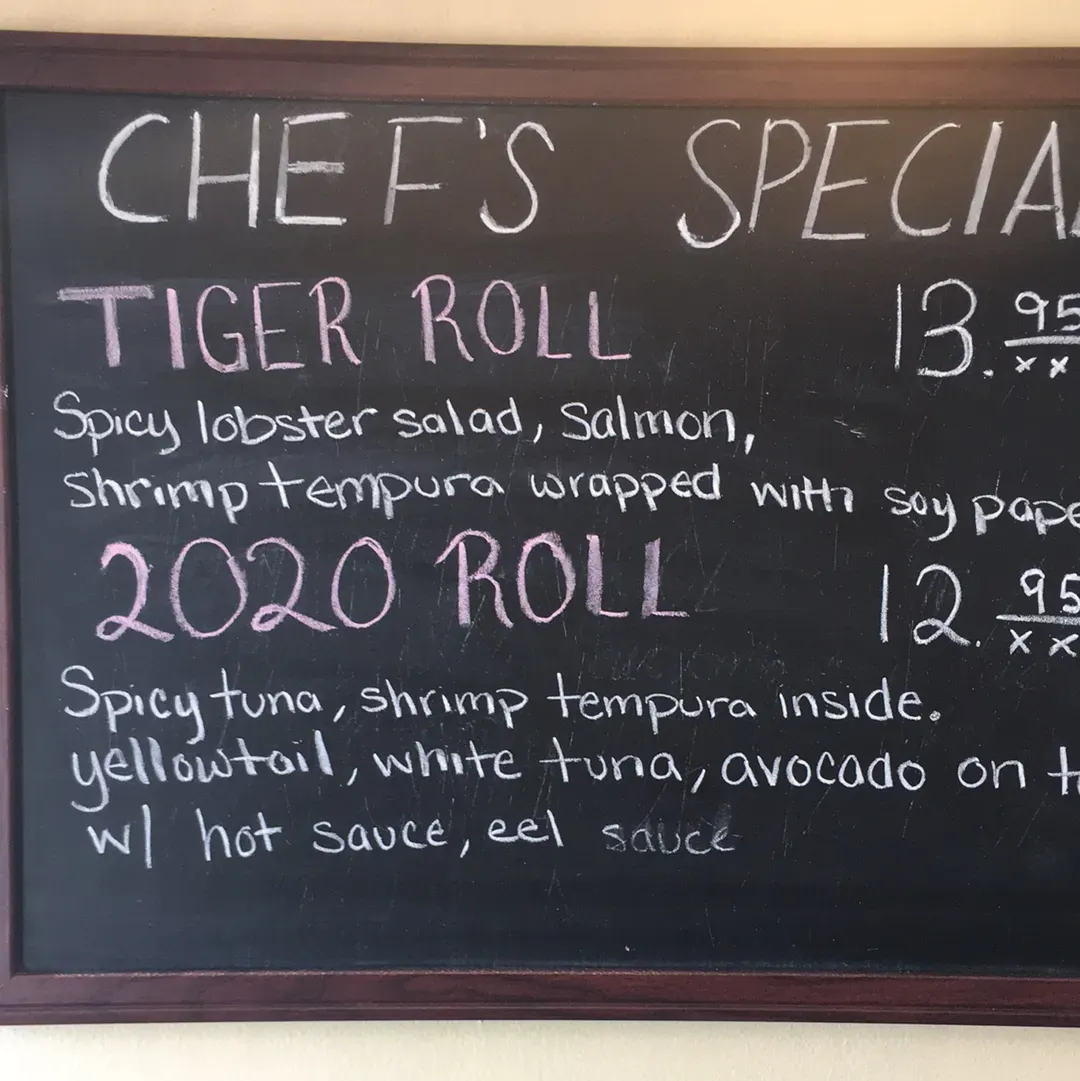 CHEF'S SPECIA
TIGER ROLL 13.95
xx
Spicy lobster salad, salmon,
shrimp tempura wrapped with soy pape
2020 ROLL 12.95
xx
Spicy tuna, shrimp tempura inside.
yellowtail, white tuna, avocado on t
w/ hot sauce, eel sauce